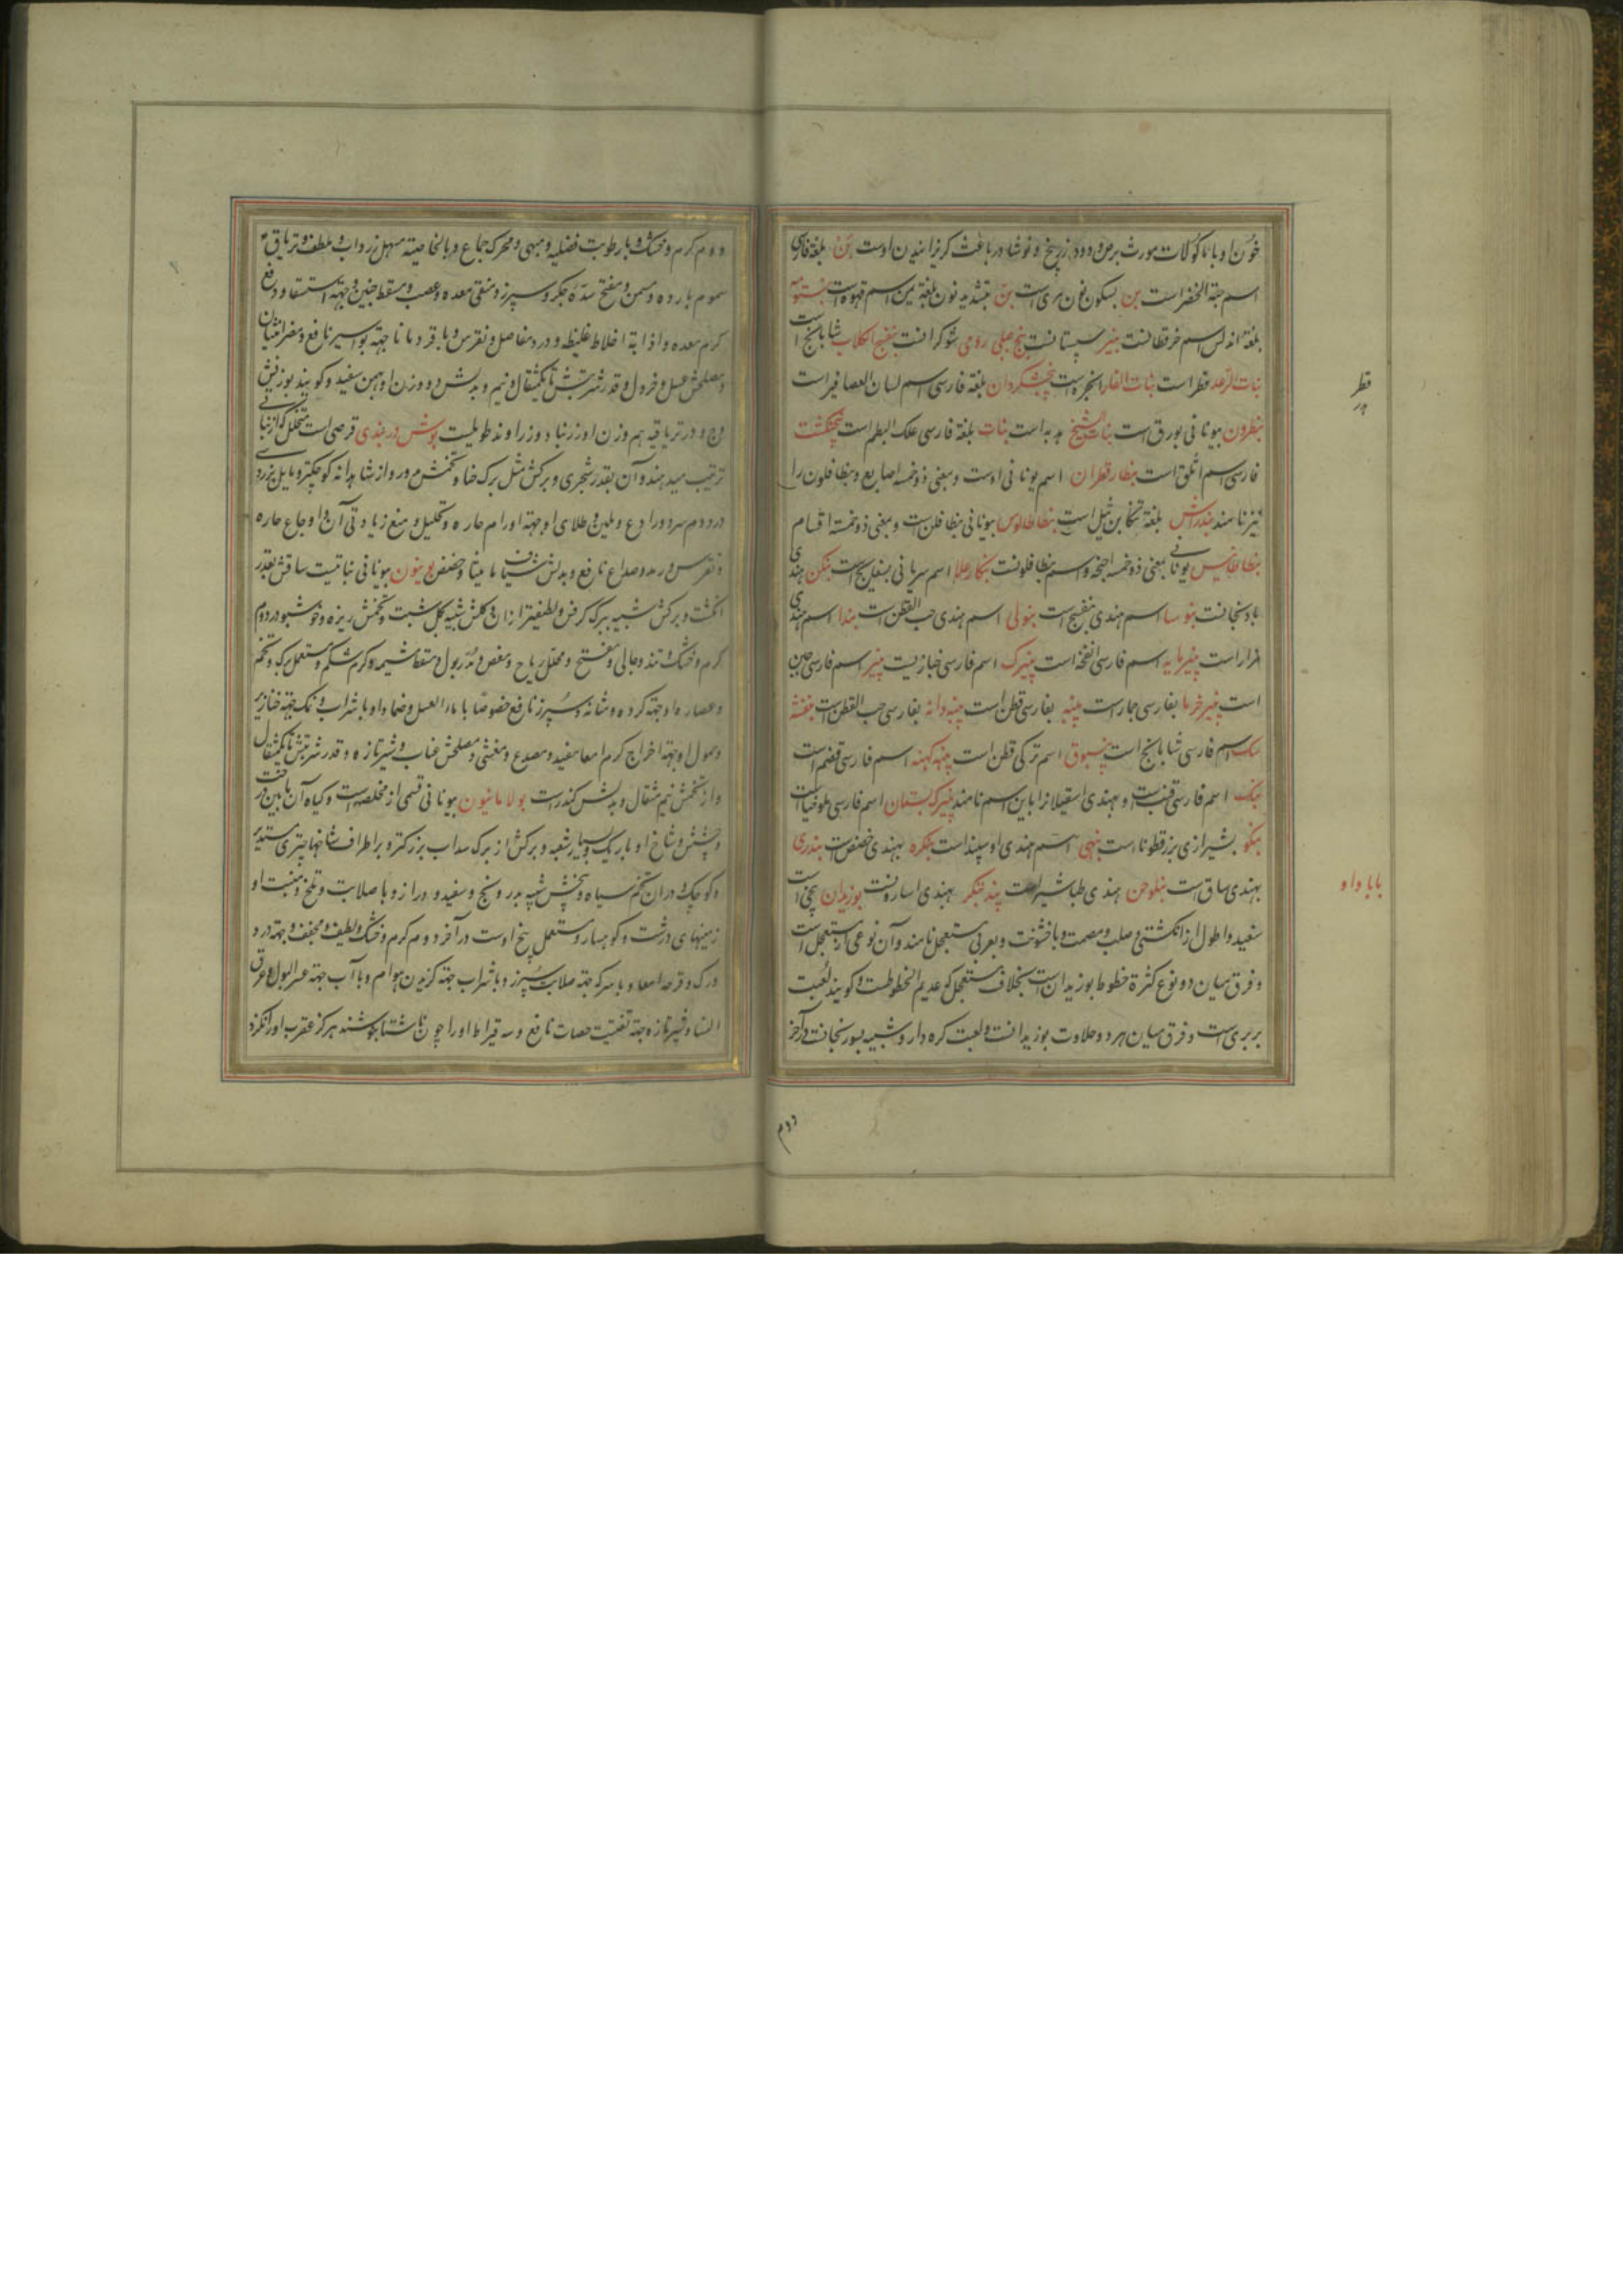 خون او با ماکولات مورث برص و دود زرنیخ و نوشادر باعث گریزانیدن اوست بن بلغة فارسی
اسم حبة الخضراست بن بسکون نون مری است بن بتشدید نون بلغة یمن اسم قهوه است بنتومه
بلغة اندلس اسم خرفطانست بنبر سپستانست بنج جبلی رومی شوکرانست بنفسج الکلاب شابانج است
بنات الرعد فطر است بنات الفار انجره است بنجشکردان بلغة فارسی اسم لسان العصافیر است
بنطرون بیونانی بورق است بنات الشیخ هدبه است بنات بلغة فارسی علک البطم است پنجنکشت
فارسی اسم اثلق است بنطارقطران اسم یونانی اوست و بمعنی ذوخمسه اصابع و بنطافلون را
نیز نامند بندراش بلغة تنکابن ثیل است بنطاطالوس بیونانی بنطافلن است و بمعنی ذوخمسة اقسام
بنطابطایس یونانی بمعنی ذوخمسه اجنحه و اسم بنطافلونست بنکارعلا اسم سریانی بسفایج است بنکن هندی
بادنجانست بنوسا اسم هندی بنفسج است بنولی اسم هندی حب القطن است بندا اسم هندی
افزار است پنیرمایه اسم فارسی انفخه است پنیرک اسم فارسی خبازیست پنیر اسم فارسی جبن
است پنیر خرما بفارسی جمار است پنبه بفارسی قطن است پنبه دانه بفارسی حب القطن است بنفشه
سک اسم فارسی شابانج است پنسبوق اسم ترکی قطن است پنبه کهنه اسم فارسی قضم است
بنک اسم فارسی قنب است و بهندی اسقیلا را باین اسم نامند پنیرک بستان اسم فارسی ملوخیا است
بنکو بشیرازی بزرقطونا است بنهی اسم هندی اوسپند است بنکره بهندی خصص است بندری
بهندی ساق است بنلوچن هندی طباشیر است پندبنکر بهندی اسارونست بوزیدان بیخی است
سفید و اطول از انکشتی و صلب و مصمت و با خشونت و بعربی مستعجل نامند و آن نوعی از مستعجل است
و فرق میان دو نوع کثرة خطوط بوزیدان است بخلاف مستعجل که عدیم الخطوطست و کویند لعبت
بربری است و فرق میان هردو حلاوت بوزیدانست و لعبت کره دار و شبیه بسورنجانست در آخر
دوم
فطر
بابا واو
دوم کرم و خشک و با رطوبت فضلیه و مبهی و محرک جماع و بالخاصیة مسهل زرداب و ملطف و تریاق
سموم بارده و مسمن و مفتح سده جکر و سپرز و منقی معده و عصب و مسقط جنین و جهة استسقا و دفع
کرم معده و اذابة اخلاط غلیظه و درد مفاصل و نقرس و با قردمانا جهة بواسیر نافع و مضر انثیان
و مصلحش عسل و خردل و قدر شربتش تا یکمثقال و نیم و بدلش دو وزن او بهمن سفید و کویند بوزنش
وج و در تریاقیه هم وزن او زرنباد و زراوند طویلست بوش دربندی قرصی است متحلل که از نباتی
ترتیب میدهند و آن بقدر شجری و برکش مثل برک حنا و تخمش مدور و از شاهدانه کوچکتر و مایل بزردی
در دوم سرد و رادع و ملین و طلای او جهة اورام حاره و تحلیل و منع زیادتی آن و اوجاع حاره
و نقرس و رمد و صداع نافع و بدلش شیاف مامیثا و حضض بوینون بیونانی نباتیست ساقش بقدر
انکشت و برکش شبیه ببرک کرفس و لطیفتر از ان و کلش شبیه بکل شبت و تخمش ریزه و خوشبو در دوم
کرم و خشک و تند و جالی و مفتح و محلل ریاح و مغص و مدر بول و مسقط مشیمه و کرم شکم و مستعمل برک و تخم
و عصاره او جهة کرده و مثانه و سپرز نافع خصوصا با ماء العسل و ضماد او با شراب و نمک جهة خنازیر
و حمول او جهة اخراج کرم امعا مفید و مصدع و مغشی و مصلحش عناب و شیر تازه و قدر شربتش تا یکمثقال
و از تخمش نیم مثقال و بدلش کندر است بولامانیون بیونانی قسمی از مخلصه است و کیاه آن مابین درخت
و حشیش و شاخ او باریک و بسیار شعبه و برکش از برک سداب بزرکتر و بر اطراف شاخها چتری مستدیر
و کوچک و در ان تخم سیاه و بیخش شبیه بدرونج و سفید و دراز و با صلابت و تلخ و منبت او
زمینهای درشت و کوهسار و مستعمل بیخ اوست در آخر دوم کرم و خشک و لطیف و مجفف و جهة درد
ورک و قرحه امعا و با سرکه جهة صلابت سپرز و با شراب جهة کزیدن هوام و با آب جهة عسر البول و عرق
النسا و شیر تازه جهة تفتیت حصات نافع و سه قیراط او را چون ناشتا بنوشند هرکز عقرب او را نکزد